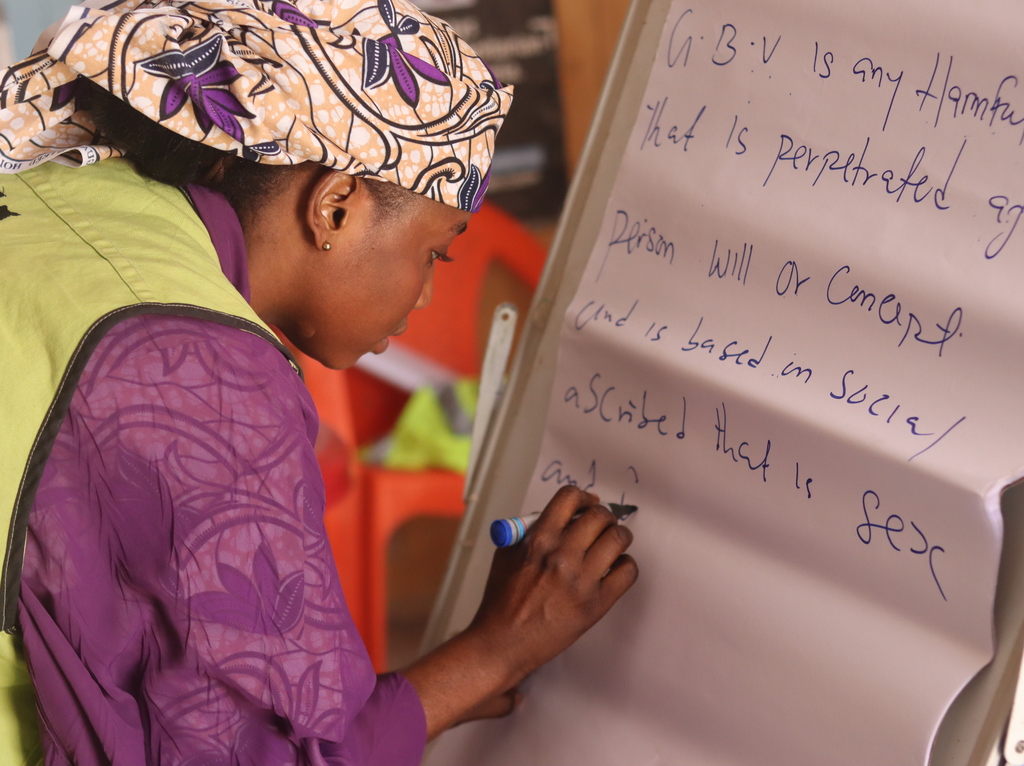 G.B.V is any Harmfu
that is perpetrated ag
person will or Concept.
and is based in Social
ascribed that is Sex
and